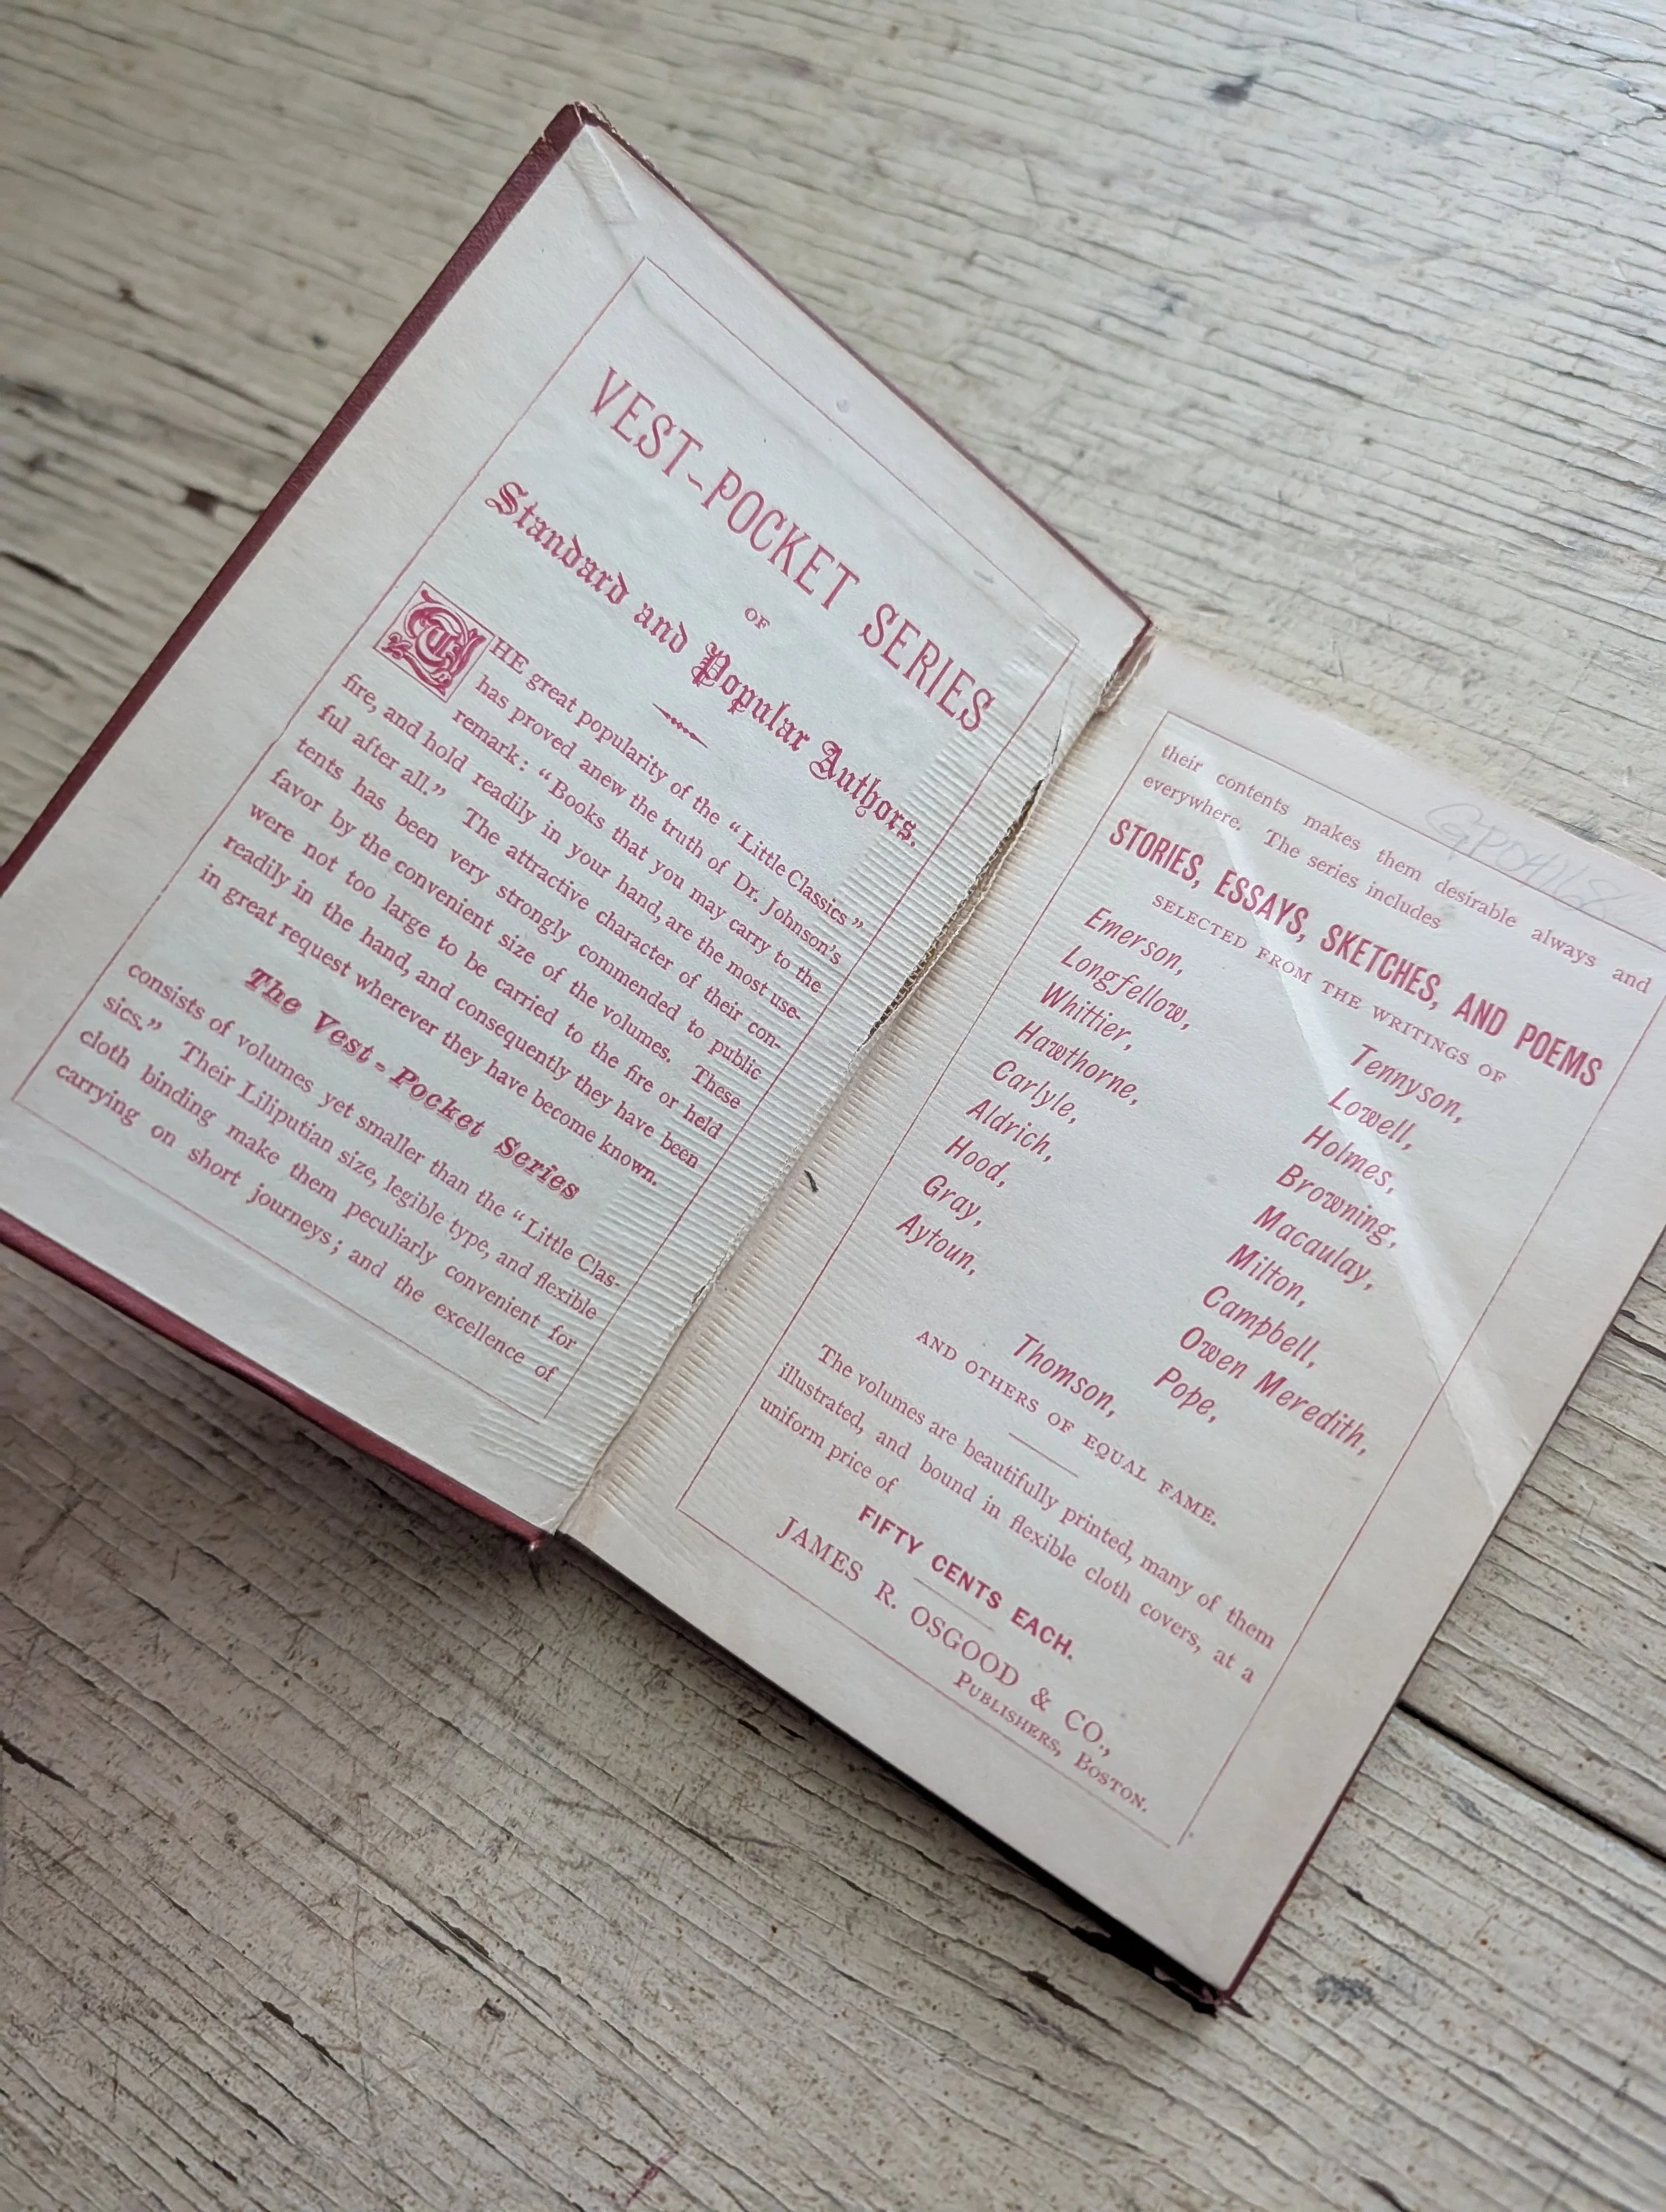 VEST-POCKET SERIES
OF
Standard and Popular Authors.
THE great popularity of the "Little Classics"
has proved anew the truth of Dr. Johnson's
remark: "Books that you may carry to the
fire, and hold readily in your hand, are the most use-
ful after all." The attractive character of their con-
tents has been very strongly commended to public
favor by the convenient size of the volumes. These
were not too large to be carried to the fire or held
readily in the hand, and consequently they have been
in great request wherever they have become known.
The Vest-Pocket Series
consists of volumes yet smaller than the "Little Clas-
sics." Their Liliputian size, legible type, and flexible
cloth binding make them peculiarly convenient for
carrying on short journeys; and the excellence of
their contents makes them desirable always and
everywhere. The series includes
STORIES, ESSAYS, SKETCHES, AND POEMS
SELECTED FROM THE WRITINGS OF
Emerson, Tennyson,
Longfellow, Lowell,
Whittier, Holmes,
Hawthorne, Browning,
Carlyle, Macaulay,
Aldrich, Milton,
Hood, Campbell,
Gray, Owen Meredith,
Aytoun, Pope,
Thomson,
AND OTHERS OF EQUAL FAME.
The volumes are beautifully printed, many of them
illustrated, and bound in flexible cloth covers, at a
uniform price of
FIFTY CENTS EACH.
JAMES R. OSGOOD & CO.,
PUBLISHERS, BOSTON.